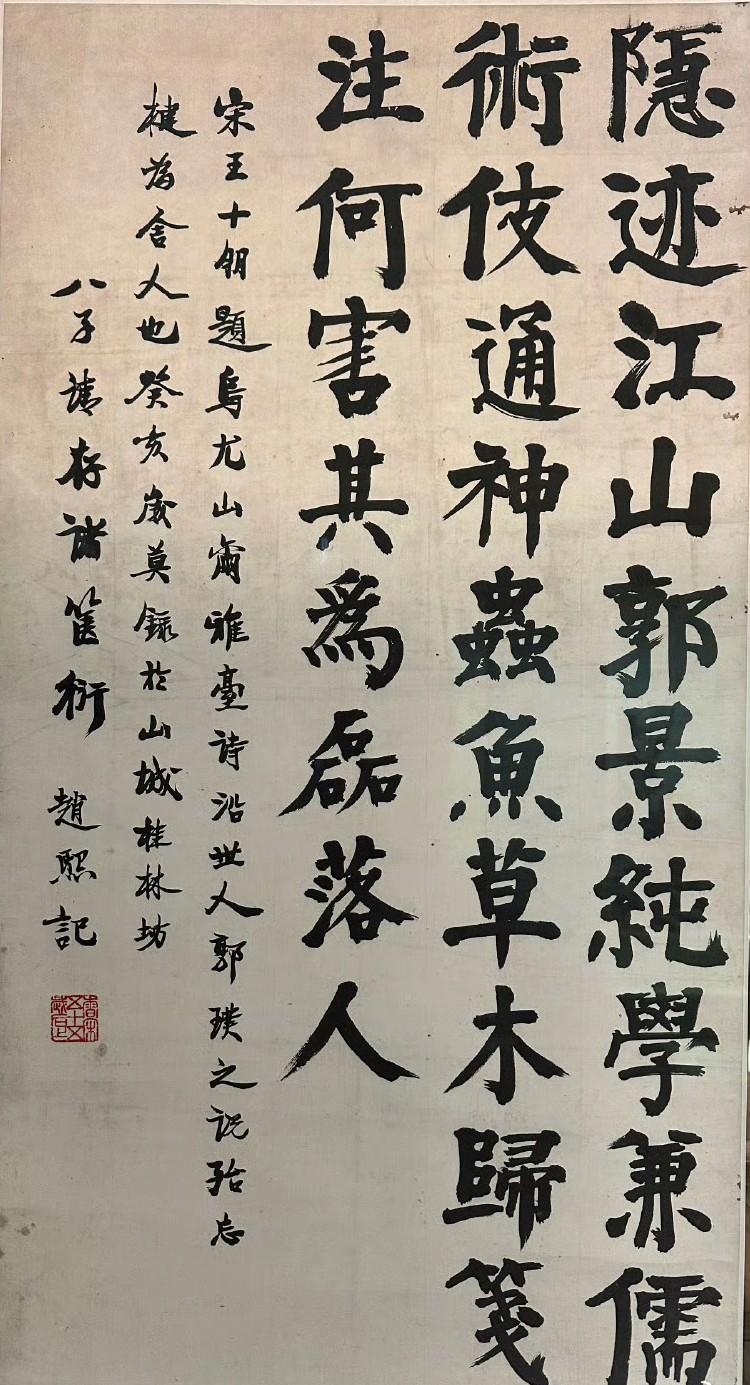 隱迹江山郭景純學兼儒
術伎通神蟲魚草木歸箋
注何害其爲磊落人
宋王十朋題烏尤山爾雅臺詩沿世人郭璞之説殆忘
犍爲舍人也癸亥歲莫錄於山城桂林坊
八子請存諸篋衍 趙熙記